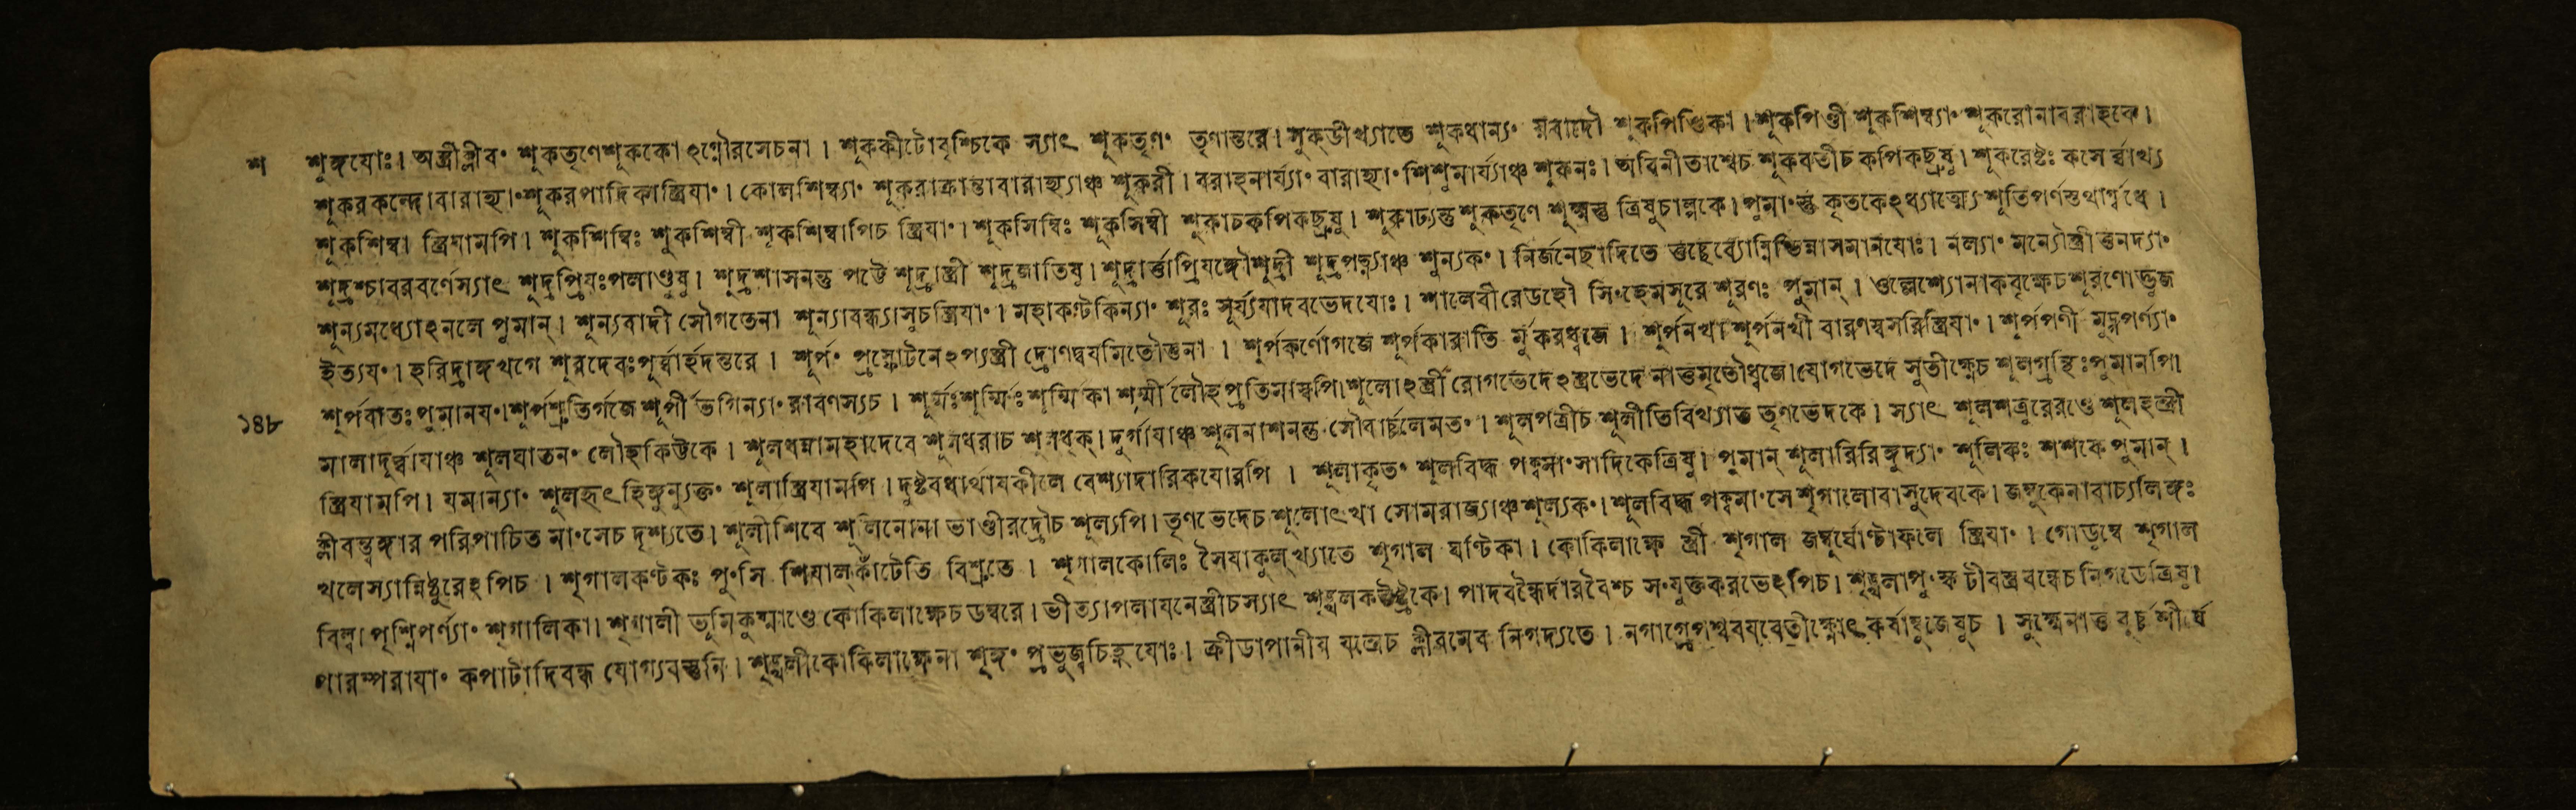 শ শূঙ্গযোঃ। অস্ত্রীক্লীবং শূকতৃণেশূককোঽগ্নৌরসেচনা । শূককীটোবৃশ্চিকে স্যাৎ শূকতৃণং তৃণান্তরে। সুকডীখ্যাতে শূকধান্যং যবাদৌ শূকপিণ্ডিকা। শূকপিণ্ডী শূকশিম্ব্যাং শূকরোনাবরাহকে।
শূকরকন্দোবারাহ্যাং শূকরপাদিকাস্ত্রিযাং। কোলশিম্ব্যাং শূকরাক্রান্তাবারাহ্যাঞ্চ শূকরী । বরাহনার্য্যাং বারাহ্যাং শিশুমার্য্যাঞ্চ শূকনঃ। অবিনীতাশ্বেচ শূকবতীচ কপিকচ্ছুষু। শূকরেষ্টঃ কসের্ব্বাখ্য
শূকশিম্বা স্ত্রিযামপি। শূকশিম্বিঃ শূকশিম্বী শূকশিম্বাপিচ স্ত্রিযাং। শূকসিম্বিঃ শূকসিম্বী শূকাচকপিকচ্ছুষু। শূকাঢ্যন্তু শূকতৃণে শূক্ষ্মন্তু ত্রিষুচাল্পকে। পুমাংস্তু কৃতকেঽধ্যাত্ম্যে শূতিপর্ণস্তথার্গ্বধে ।
শূদ্রশ্চাবরবর্ণেস্যাৎ শূদ্রপ্রিযঃপলাণ্ডুষু। শূদ্রশাসনন্তু পট্টে শূদ্রাস্ত্রী শূদ্রজাতিষু। শূদ্রার্ত্তাপ্রিযঙ্গৌশূদ্রী শূদ্রপত্ন্যাঞ্চ শূন্যকং। নির্জনেছাদিতে নল্যাং
শূন্যমধ্যোঽনলে পুমান্। শূন্যবাদী সৌগতেনা শূন্যাবন্ধ্যাসুচস্ত্রিযাং। মহাকণ্টকিন্যাং শূরঃ সূর্য্যযাদবভেদযোঃ। শালেবীরেডহৌ সিংহেমসূরে শূরণঃ পুমান্ । ওল্লেশ্যোনাকবৃক্ষেচ
ইত্যযং। হরিদ্রাঙ্গখগে শূরদেবঃপূর্ব্বার্হদন্তরে । শূর্পং প্রস্ফোটনেঽপ্যস্ত্রী দ্রোণদ্বযমিতৌতুনা । শূর্পকর্ণোগজে শূর্পকারাতি র্মকরধ্বজে । শূর্পনখা শূর্পনখী স্ত্রিযাং। শূর্পপর্ণী মুদ্গপর্ণ্যাং
১৪৮ শূর্পবাতঃপুমানযং। শূর্পশ্রুতির্গজে শূর্পী ভগিন্যাং রাবণস্যচ । শূর্মঃশূর্ম্মিঃ শূর্ম্মিকা শূর্ম্মী লৌহপ্রতিমাস্বপি। শূলোঽস্ত্রী রোগভেদেঽস্ত্রভেদে নাত্তমৃতৌধ্বজে। যোগভেদে সুতীক্ষ্ণেচ শূলগ্রন্থিঃপুমানপি।
মালাদূর্ব্বাযাঞ্চ শূলঘাতনং লৌহকিট্টকে । শূলধন্বামহাদেবে শূলধরাচ শূলধৃক্। দুর্গাযাঞ্চ শূলনাশনন্তু সৌবার্চ্চলেমতং। শূলপত্রীচ শূলীতিবিখ্যাত তৃণভেদকে। স্যাৎ শূলশত্রুরেরণ্ডে শূলহন্ত্রী
স্ত্রিযামপি। যমান্যাং শূলহৃৎহিঙ্গুন্যুক্তং শূলাস্ত্রিযামপি। দুষ্টবধার্থাযকীলে বেশ্যাদারিকযোরপি । শূলাকৃতং শূলবিদ্ধ পক্বমাংসাদিকেত্রিষু। পুমান্ শূলারিরিঙ্গুদ্যাং শূলিকঃ শশকেপুমান্।
ক্লীবন্ত্বঙ্গার পরিপাচিত মাংসেচ দৃশ্যতে। শূলীশিবে শূলিনোনা ভাণ্ডীরদ্রৌচ শূল্যপি। তৃণভেদেচ শূলোৎথা সোমরাজ্যাঞ্চশূল্যকং। শূলবিদ্ধ পক্বমাংসে শৃগালোবাসুদেবকে। জম্বুকেনাবাচ্যলিঙ্গঃ
খলেস্যান্নিষ্ঠুরেঽপিচ । শৃগালকণ্টকঃ পুংসি শিযালকাঁটেতি বিশ্রুতে । শৃগালকোলিঃ সৈযাকুলখ্যাতে শৃগাল ঘণ্টিকা। কোকিলাক্ষে স্ত্রী শৃগাল জম্বুর্ঘোণ্টাফলে স্ত্রিযাং । গোডুম্বে শৃগাল
বিন্না পৃশ্নিপর্ণ্যাং শৃগালিকা। শৃগালী ভূমিকুষ্মাণ্ডে কোকিলাক্ষেচ ডম্বরে। ভীত্যাপলাযনেস্ত্রীচস্যাৎ পাদবন্ধৈর্দারবৈশ্চ সংযুক্তকরভেঽপিচ। শৃঙ্খলাপুংস্কটীবস্ত্রবন্ধেচ নিগডেত্রিষু।
পারম্পরাযাং কপাটাদিবন্ধ যোগ্যবস্তুনি। শৃঙ্খলীকোকিলাক্ষেনা শৃঙ্গং প্রভুত্বচিহ্নযোঃ। ক্রীডাপানীয যন্ত্রেচ ক্লীবমেব নিগদ্যতে ।